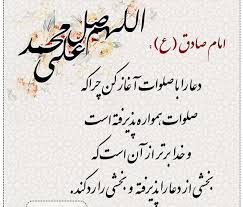 اللهم صل علی محمد
امام صادق (ع) :
دعا را با صلوات آغاز کن چرا که
صلوات همواره پذیرفته است
و خدا برتر از آن است که
بخشی از دعا را پذیرفته و بخشی را رد کند.